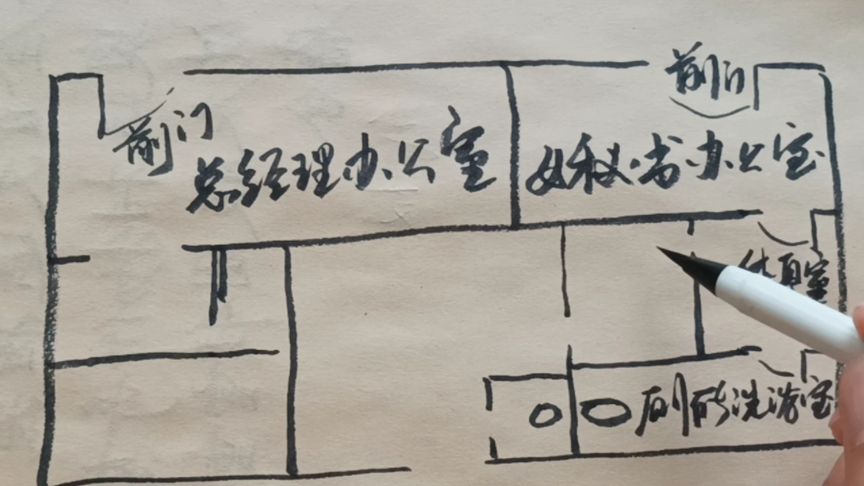 前门
前门
总经理办公室
女秘书办公室
休息室
厕所洗浴室